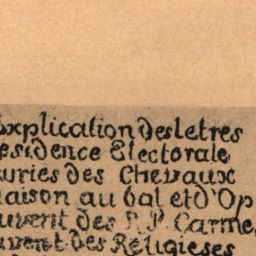 Explication des letres
esidence Electorale
uries des Chevaux
aison au bal et d'Op
uvent des P. P. Carme
uvent des Religieses